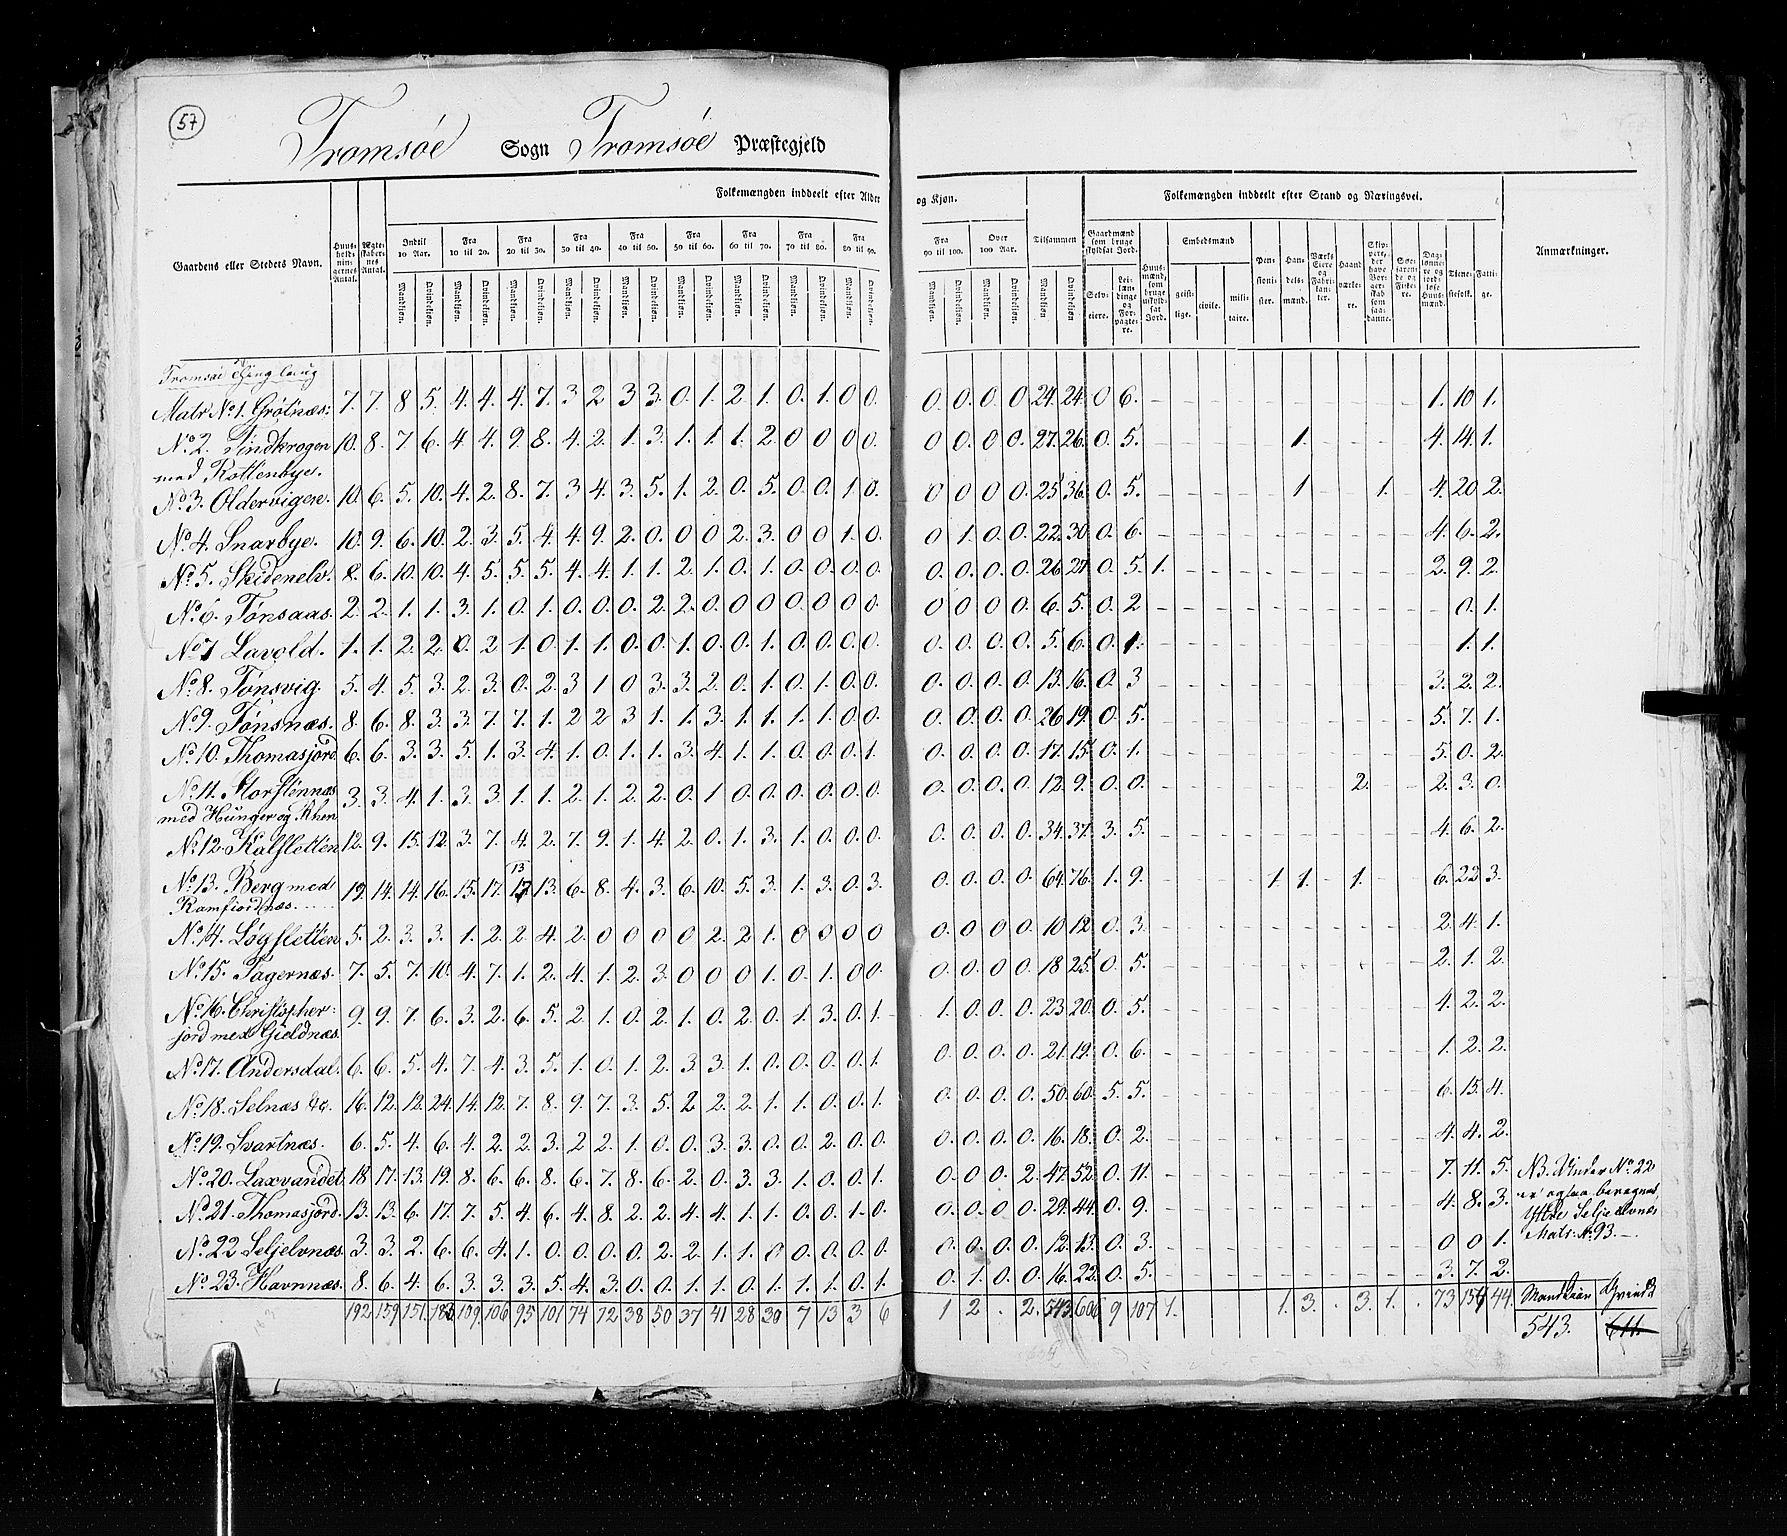 57
Tromsöe Sogn Tromsöe Præstegjeld
Folkemængden inddeelt efter Alder og Kjøn. Folkemængden inddeelt efter Stand og Næringsvei.
Gaardens eller Stedets Navn. Huusholdningernes Antal. Ægteskabernes Antal. Indtil 10 Aar. Fra 10 til 20. Fra 20 til 30. Fra 30 til 40. Fra 40 til 50. Fra 50 til 60. Fra 60 til 70. Fra 70 til 80. Fra 80 til 90. Fra 90 til 100. Over 100 Aar. Tilsammen Gaardmænd som bruge skyldsat Jord. Huusmænd, som bruge uskyldsat Jord. Embedsmænd Pensionister. Handelsmænd. Værks Eiere og Fabrikanter. Haandværkere. Skippere, der have Borgerskab som saadanne. Søefarende og Fiskere. Daglønnere og jordløse Huusmænd. Tjenestefolk. Fattige. Anmærkninger.
Mandkjøn. Qvindekjøn. Selveiere. Leilændinge og Forpagtere. geistlige. civile. militaire.
Tromsöe Thing laug
Matr No 1. Grötnæs: 7. 7. 8 5. 4. 4. 4. 7. 3 2 3 3. 0. 1. 2. 1. 0. 1. 0 0. 0. 0. 0. 0. 24. 24. 0 6. 1. 10 1.
No 2. Tindkrogen 10. 8. 7 6. 4. 4. 9. 8. 4. 2. 1. 3. 1. 1. 1. 2. 0 0 0 0. 0 0. 0 0. 27. 26. 0. 5. 1. 4. 14. 1.
med Kottenbye.
No 3. Oldervigen. 10. 6. 5. 10. 4. 2. 8. 7. 3 4. 3. 5. 1. 2. 0. 5. 0 0. 1. 0. 0 0 0 0. 25 36. 0. 5. 1 1. 4. 20 2.
No 4. Snarbye. 10. 9. 6. 10. 2. 3. 5. 4. 4. 9. 2. 0. 0 0 2. 3. 0 0 1. 0. 0 1. 0. 0. 22. 30. 0. 6. 4. 6. 2.
No 5. Skidenelv. 8. 6. 10. 10. 4. 5. 5. 5. 4. 4. 1. 1. 2. 1. 0. 1. 0. 0. 0. 0. 0. 0. 0. 0. 26 27. 0. 5. 1. 2. 9. 2.
No 6. Tönsaas. 2. 2. 1. 1. 3. 1. 0. 1. 0. 0. 0. 2. 2. 0. 0 0 0. 0. 0 0. 0 0 0 0. 6. 5. 0. 2 0. 1.
No 7 Lavold. 1. 1. 2. 2. 0. 2 1. 0. 1. 1. 0. 0. 1. 0. 0. 1. 0. 0. 0. 0. 0. 0. 0. 0. 5. 6. 0. 1. 1. 1.
No 8. Tönsvig. 5. 4. 5. 3. 2. 3. 0. 2. 3 1 0 3. 3. 2. 0. 1. 0. 1. 0. 0. 0. 0. 0. 0. 13. 16. 0. 3 3. 2. 2.
No 9. Tönsnæs. 8. 6. 8. 3. 3. 7. 7. 1. 2 2 3 1. 1. 3. 1. 1. 1. 1. 0 0. 0. 0. 0. 0. 26 19. 0. 5. 5. 7. 1.
No 10. Thomasjord 6. 6. 3. 3. 5. 1. 3. 4. 1. 0. 1. 1. 3. 4. 1. 1. 0. 0. 0. 1. 0. 0. 0. 0. 17. 15. 0. 1. 5. 0. 2.
No 11. Storstennæs 3. 3. 4. 1. 3. 3. 1. 1. 2. 1. 2. 2. 0. 1 0. 0. 0. 0. 0. 0. 0. 0. 0. 0. 12. 9. 0. 0. 2. 2. 3. 0.
med Hunger og Rhen
No 12. Kalsletten 12. 9. 15. 12. 3. 7. 4. 2. 7. 9. 1. 4. 2. 0. 1. 3. 1. 0. 0. 0. 0. 0. 0. 0. 34. 37. 3. 5. 4. 6. 2.
13
No 13. Berg med 19. 14. 14. 16. 15. 17. 17 13. 6. 8. 4. 3. 6. 10. 5. 3. 1. 3. 0. 3. 0. 0. 0. 0. 64. 76. 1. 9. 1. 1. 1. 6. 22 3.
Ramfiordnæs.
No 14. Lögsletten 5. 2. 3. 3. 1. 2. 2. 4. 2. 0 0 0 0 2. 2. 1. 0 0 0 0 0. 0. 0 0. 10 12. 0. 3. 2. 4. 1.
No 15. Fagernæs. 7. 5. 7. 10. 4. 7. 1. 2. 4. 1. 2. 3. 0 0 0 1. 0. 1. 0 0. 0. 0. 0. 0. 18 25. 0. 5. 2. 1. 2.
No 16. Christopher- 9. 9. 7. 6. 3. 2. 6. 5. 2. 1. 0. 2. 1. 0. 2. 0. 1. 3. 0. 1 1. 0. 0. 0. 23 20. 0. 5. 4. 2. 2.
jord med Gjeldnæs.
No 17. Andersdal. 6. 6. 5. 4. 7. 4. 3. 5. 1. 0. 1. 2. 3. 3. 1. 0. 0. 0. 0. 1. 0. 0. 0. 0. 21. 19. 0. 6. 1. 2. 2.
No 18. Selnæs &c. 16. 12. 12. 24. 14. 12. 7. 8. 9. 7. 3. 5. 2 2. 2. 1. 1. 0. 0. 1. 0. 0. 0. 0. 50. 60. 5. 5. 6. 15. 4.
No 19. Svartnæs. 6. 5. 4. 6. 4. 2. 2. 3. 2. 2. 1. 0. 0. 3. 3. 0. 0. 2. 0. 0. 0. 0. 0. 0. 16. 18. 0. 2. 4. 4. 2.
No 20. Laxvandet. 18 17. 13. 19. 8. 6. 6. 8. 6. 7. 8. 6. 2. 0. 3. 3. 1. 0. 0. 1. 0. 0. 0. 2. 47. 52. 0. 11. 7. 11. 5. NB. Under No 22
No 21. Thomasjord. 13. 13. 6. 17. 7. 5. 4. 6. 4. 8. 2. 2. 4. 4. 1. 1. 0. 0. 1. 0. 0. 0. 0. 0. 29. 44. 0. 9. 4. 8. 3. er ogsaa beregnet
Yttre Seljeelvnæs
No 22 Seljelvnæs. 3. 3. 2. 6. 6. 4. 1. 0. 0. 0. 0. 2. 2. 1. 1. 0 0. 0. 0. 0. 0. 0. 0. 0. 12. 13. 0. 3. 0 0 1. Matr: No 93.
No 23. Havnnæs. 8. 6. 4. 6. 3. 3. 3. 5. 4. 3. 0. 0. 1. 1. 0. 1. 1. 1. 0. 1. 0. 1. 0. 0. 16. 22. 0. 5. 3. 7. 2.
192 159 151. 109. 106 95 101 74 72 38 50 37 41 28 30 7 13 3 6 1 2 . 2. 543. 606 9 107 1. 1. 3. . 3. 1. . 73 44. Mandkiön Qvindk
543. 611.